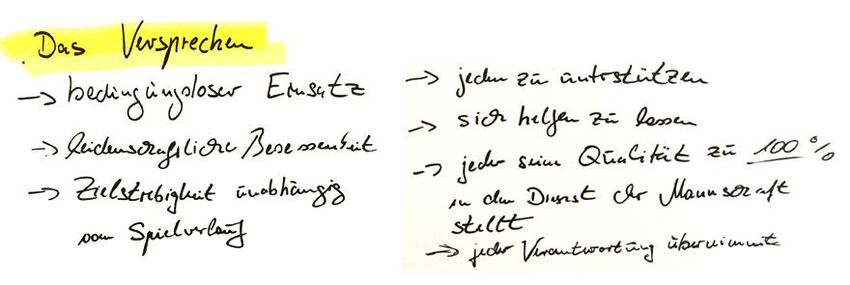 Das Versprechen
→ bedingungsloser Einsatz
→ leidenschaftliche Besessenheit
→ Zielstrebigkeit unabhängig
vom Spielverlauf
→ jeden zu unterstützen
→ sich helfen zu lassen
→ jeder seine Qualität zu 100%
in den Dienst der Mannschaft
stellt
→ jeder Verantwortung übernimmt